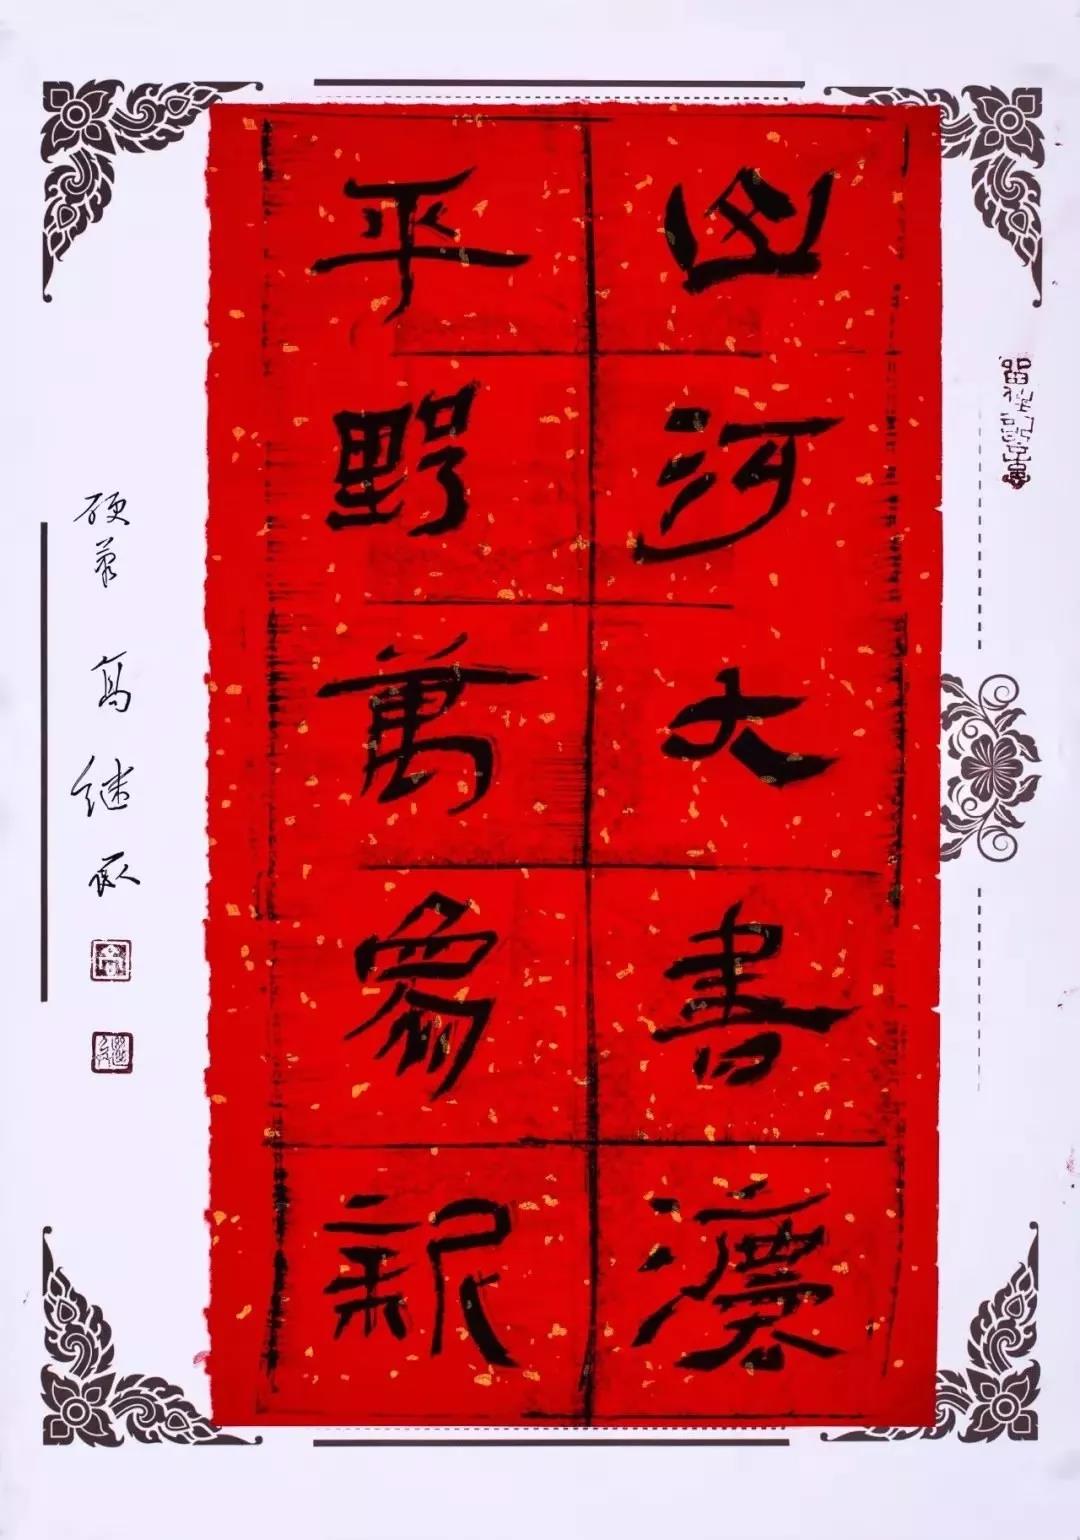 山河大書灋
平野萬象新
硬筆 高继承